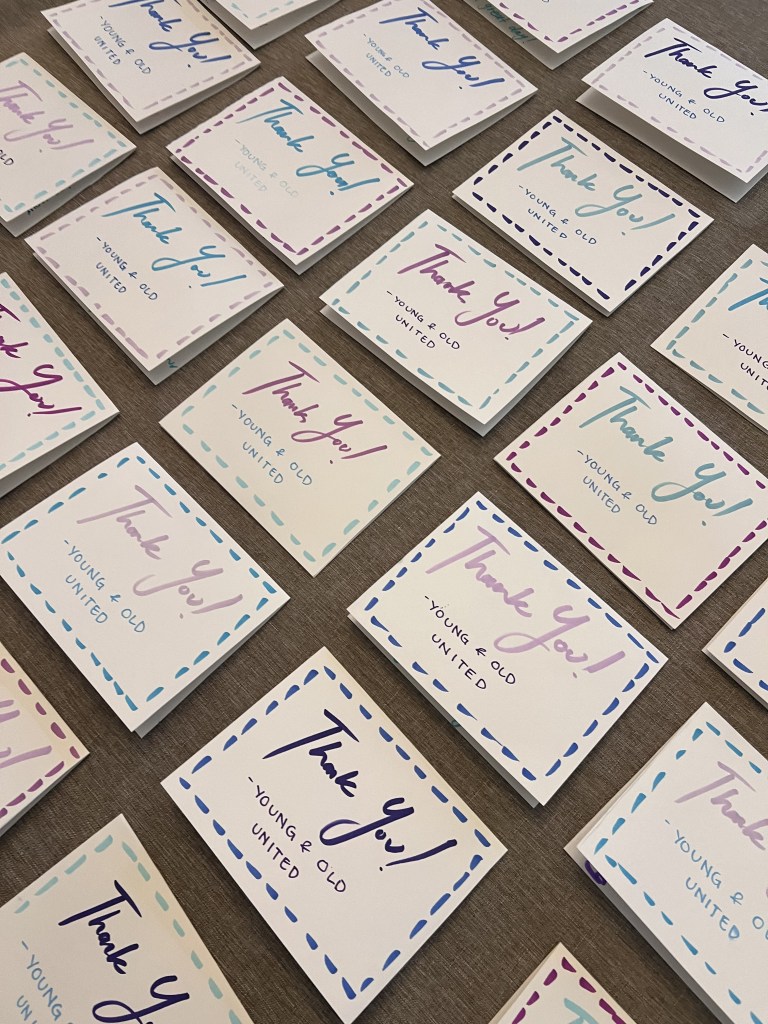 Thank You!
-YOUNG & OLD
UNITED
Thank You!
-YOUNG & OLD
UNITED
Thank You!
-YOUNG & OLD
UNITED
Thank You!
OLD
Thank You!
-YOUNG & OLD
UNITED
Thank You!
-YOUNG & OLD
UNITED
Thank You!
-YOUNG & OLD
UNITED
Thank You!
-YOUNG & OLD
UNITED
-YOUNG
You!
Thank You!
-YOUNG & OLD
UNITED
Thank You!
-YOUNG & OLD
UNITED
Thank You!
-YOUNG & OLD
UNITED
Thank You!
-YOUNG & OLD
UNITED
Thank You!
-YOUNG & OLD
UNITED
Thank
-YOUNG &
UNITED
Thank
-YOUNG & OLD